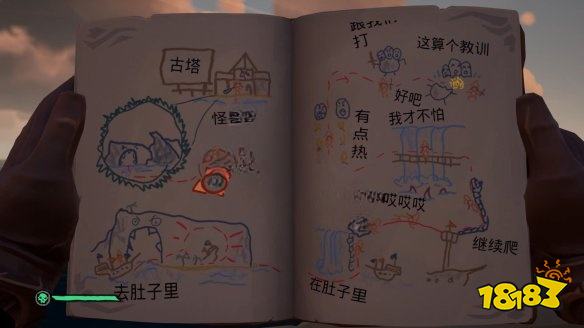 古塔
怪兽
去肚子里
跟我们
打
这算个教训
好吧
我才不怕
有点热
哎哎哎
继续爬
在肚子里
18183